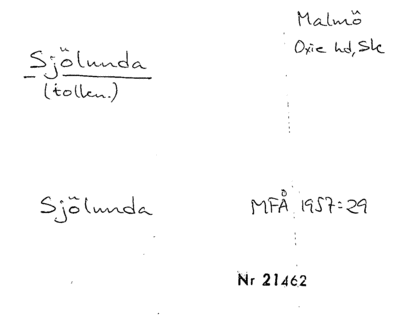 Malmö
Oxie hd, Sk
Sjölunda
(tolkn.)
Sjölunda MFÅ 1957:29
Nr 21462